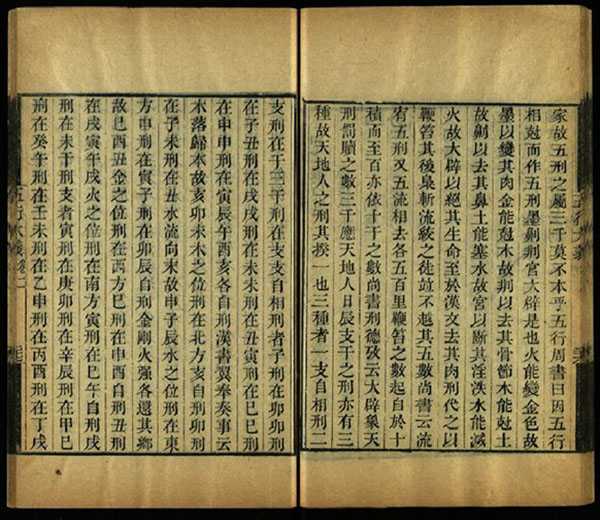 家故五刑之屬三千莫不本乎五行周書曰因五行
相尅而作五刑墨劓剕宮大辟是也火能變金色故
墨以變其肉金能尅木故剕以去其骨節木能尅土
故劓以去其鼻土能塞水故宮以斷其淫泆水能滅
火故大辟以絕其生命至於漢文去其肉刑代之以
鞭笞其後梟斬流絞之徒竝不越其五數尚書云流
宥五刑又五流相去各五百里鞭笞之數起自於十
積而至百亦依十干之數尚書刑德攷云大辟象天
刑罰贖之數三千應天地人日辰支干之刑亦有三
種故天地人之刑其揆一也三種者一支自相刑二
支刑在干三干刑在支支自相刑者子刑在卯卯刑
在子丑刑在戌戌刑在未未刑在丑寅刑在巳巳刑
在申申刑在寅辰午酉亥各自刑漢書翼奉奏事云
木落歸本故亥卯未木之位刑在北方亥自刑卯刑
在子未刑在丑水流向末故申子辰水之位刑在東
方申刑在寅子刑在卯辰自刑金剛火強各還其鄉
故巳酉丑金之位刑在西方巳刑在申酉自刑丑刑
在戌寅午戌火之位刑在南方寅刑在巳午自刑戌
刑在未干刑支者寅刑在庚卯刑在辛辰刑在甲巳
刑在癸午刑在壬未刑在乙申刑在丙酉刑在丁戌